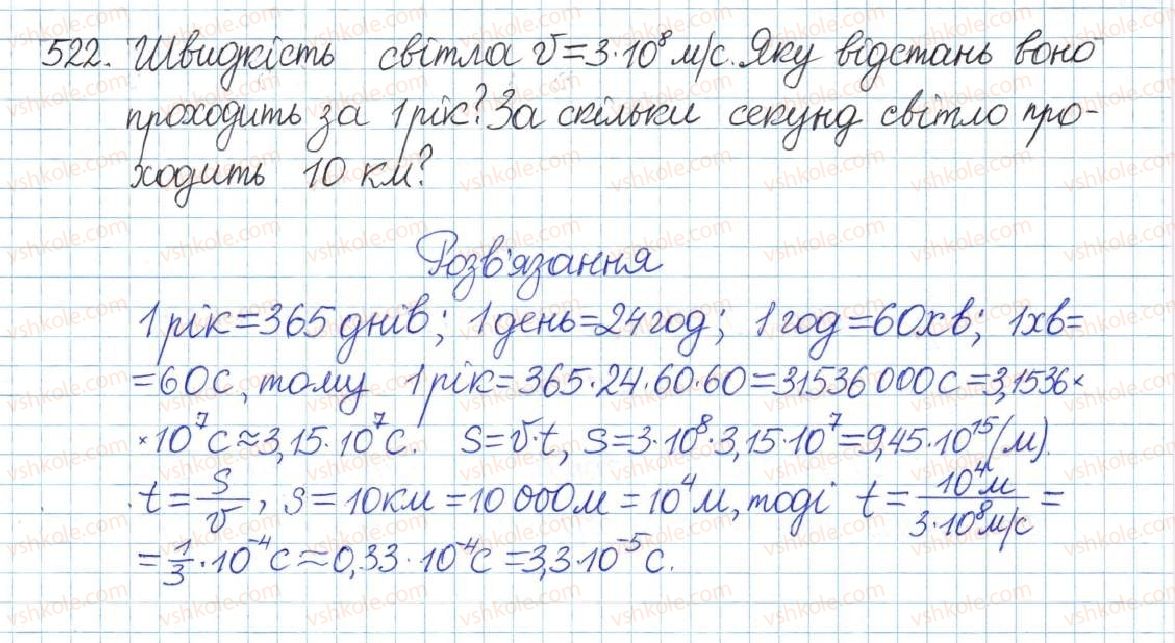 522. Швидкість світла v=3·10⁸ м/с. Яку відстань воно
проходить за 1 рік? За скільки секунд світло про-
ходить 10 км?
Розв'язання
1 рік=365 днів; 1 день=24 год; 1 год=60хв; 1хв=
=60с, тому 1 рік=365·24·60·60=31536 000с=3,1536×
×10⁷с≈3,15·10⁷с. S=v·t, S=3·10⁸·3,15·10⁷=9,45·10¹⁵(м).
t=S/v, S=10км=10 000м=10⁴м, тоді t=10⁴м/3·10⁸м/с=
=1/3·10⁻⁴с≈0,33·10⁻⁴с=3,3·10⁻⁵с.